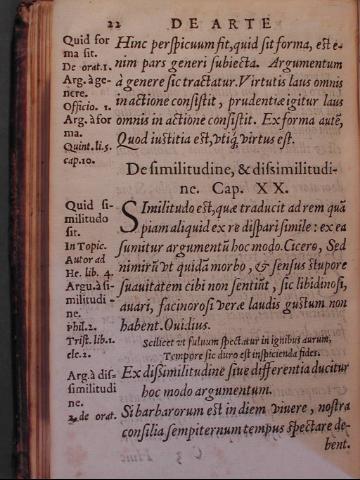 22 DE ARTE
Quid for
ma sit.
De orat.1.
Arg. à ge-
nere.
Officio. 1.
Arg. à for
ma.
Quint. li.5.
cap.10.
Hinc perspicuum fit, quid sit forma, est e-
nim pars generi subiecta. Argumentum
à genere sic tractatur. Virtutis laus omnis
in actione consistit, prudentiæ igitur laus
omnis in actione consistit. Ex forma autē,
Quod iustitia est, utiq; virtus est.
De similitudine, & dissimilitudi-
ne. Cap. XX.
Quid si-
militudo
sit.
In Topic.
Autor ad
He. lib. 4.
Argu. à si-
militudi-
ne.
Phil.2.
Trist. lib.1.
ele.2.
Similitudo est, quæ traducit ad rem quā
piam aliquid ex re dispari simile: ex ea
sumitur argumentū hoc modo. Cicero, Sed
nimirū ut quidā morbo, & sensus stupore
suauitatem cibi non sentiūt, sic libidinosi,
auari, facinorosi veræ laudis gustum non
habent. Ouidius.
Scilicet ut fuluum spectatur in ignibus aurum,
Tempore sic duro est inspicienda fides.
Arg. à dis-
similitudi
ne.
2. de orat.
Ex dissimilitudine siue differentia ducitur
hoc modo argumentum.
Si barbarorum est in diem viuere, nostra
consilia sempiternum tempus spectare de-
bent.